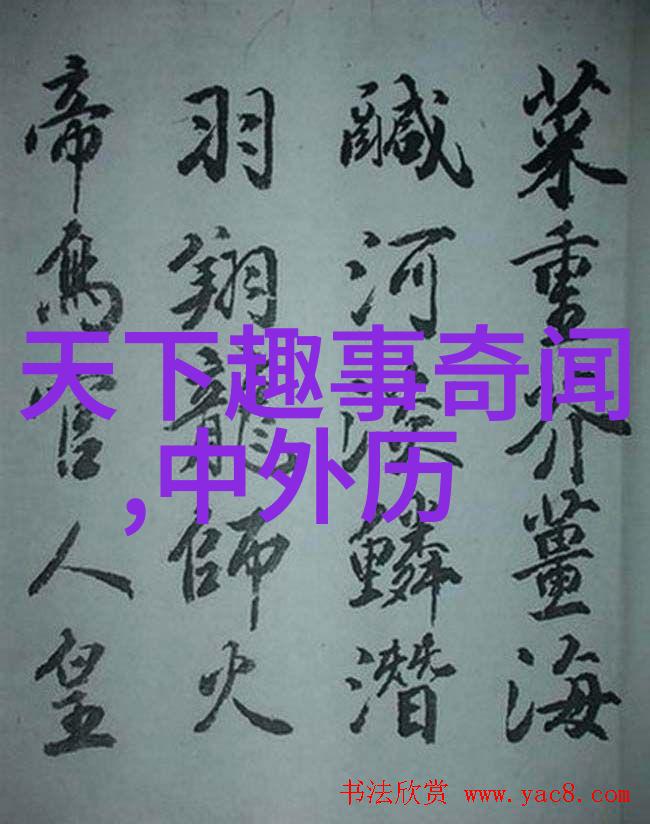 菜重芥薑海
鹹河淡鱗潛
羽翔龍師火
帝鳥官人皇
天下趣事奇闻
,中外历
书法欣赏 www.yac8.com